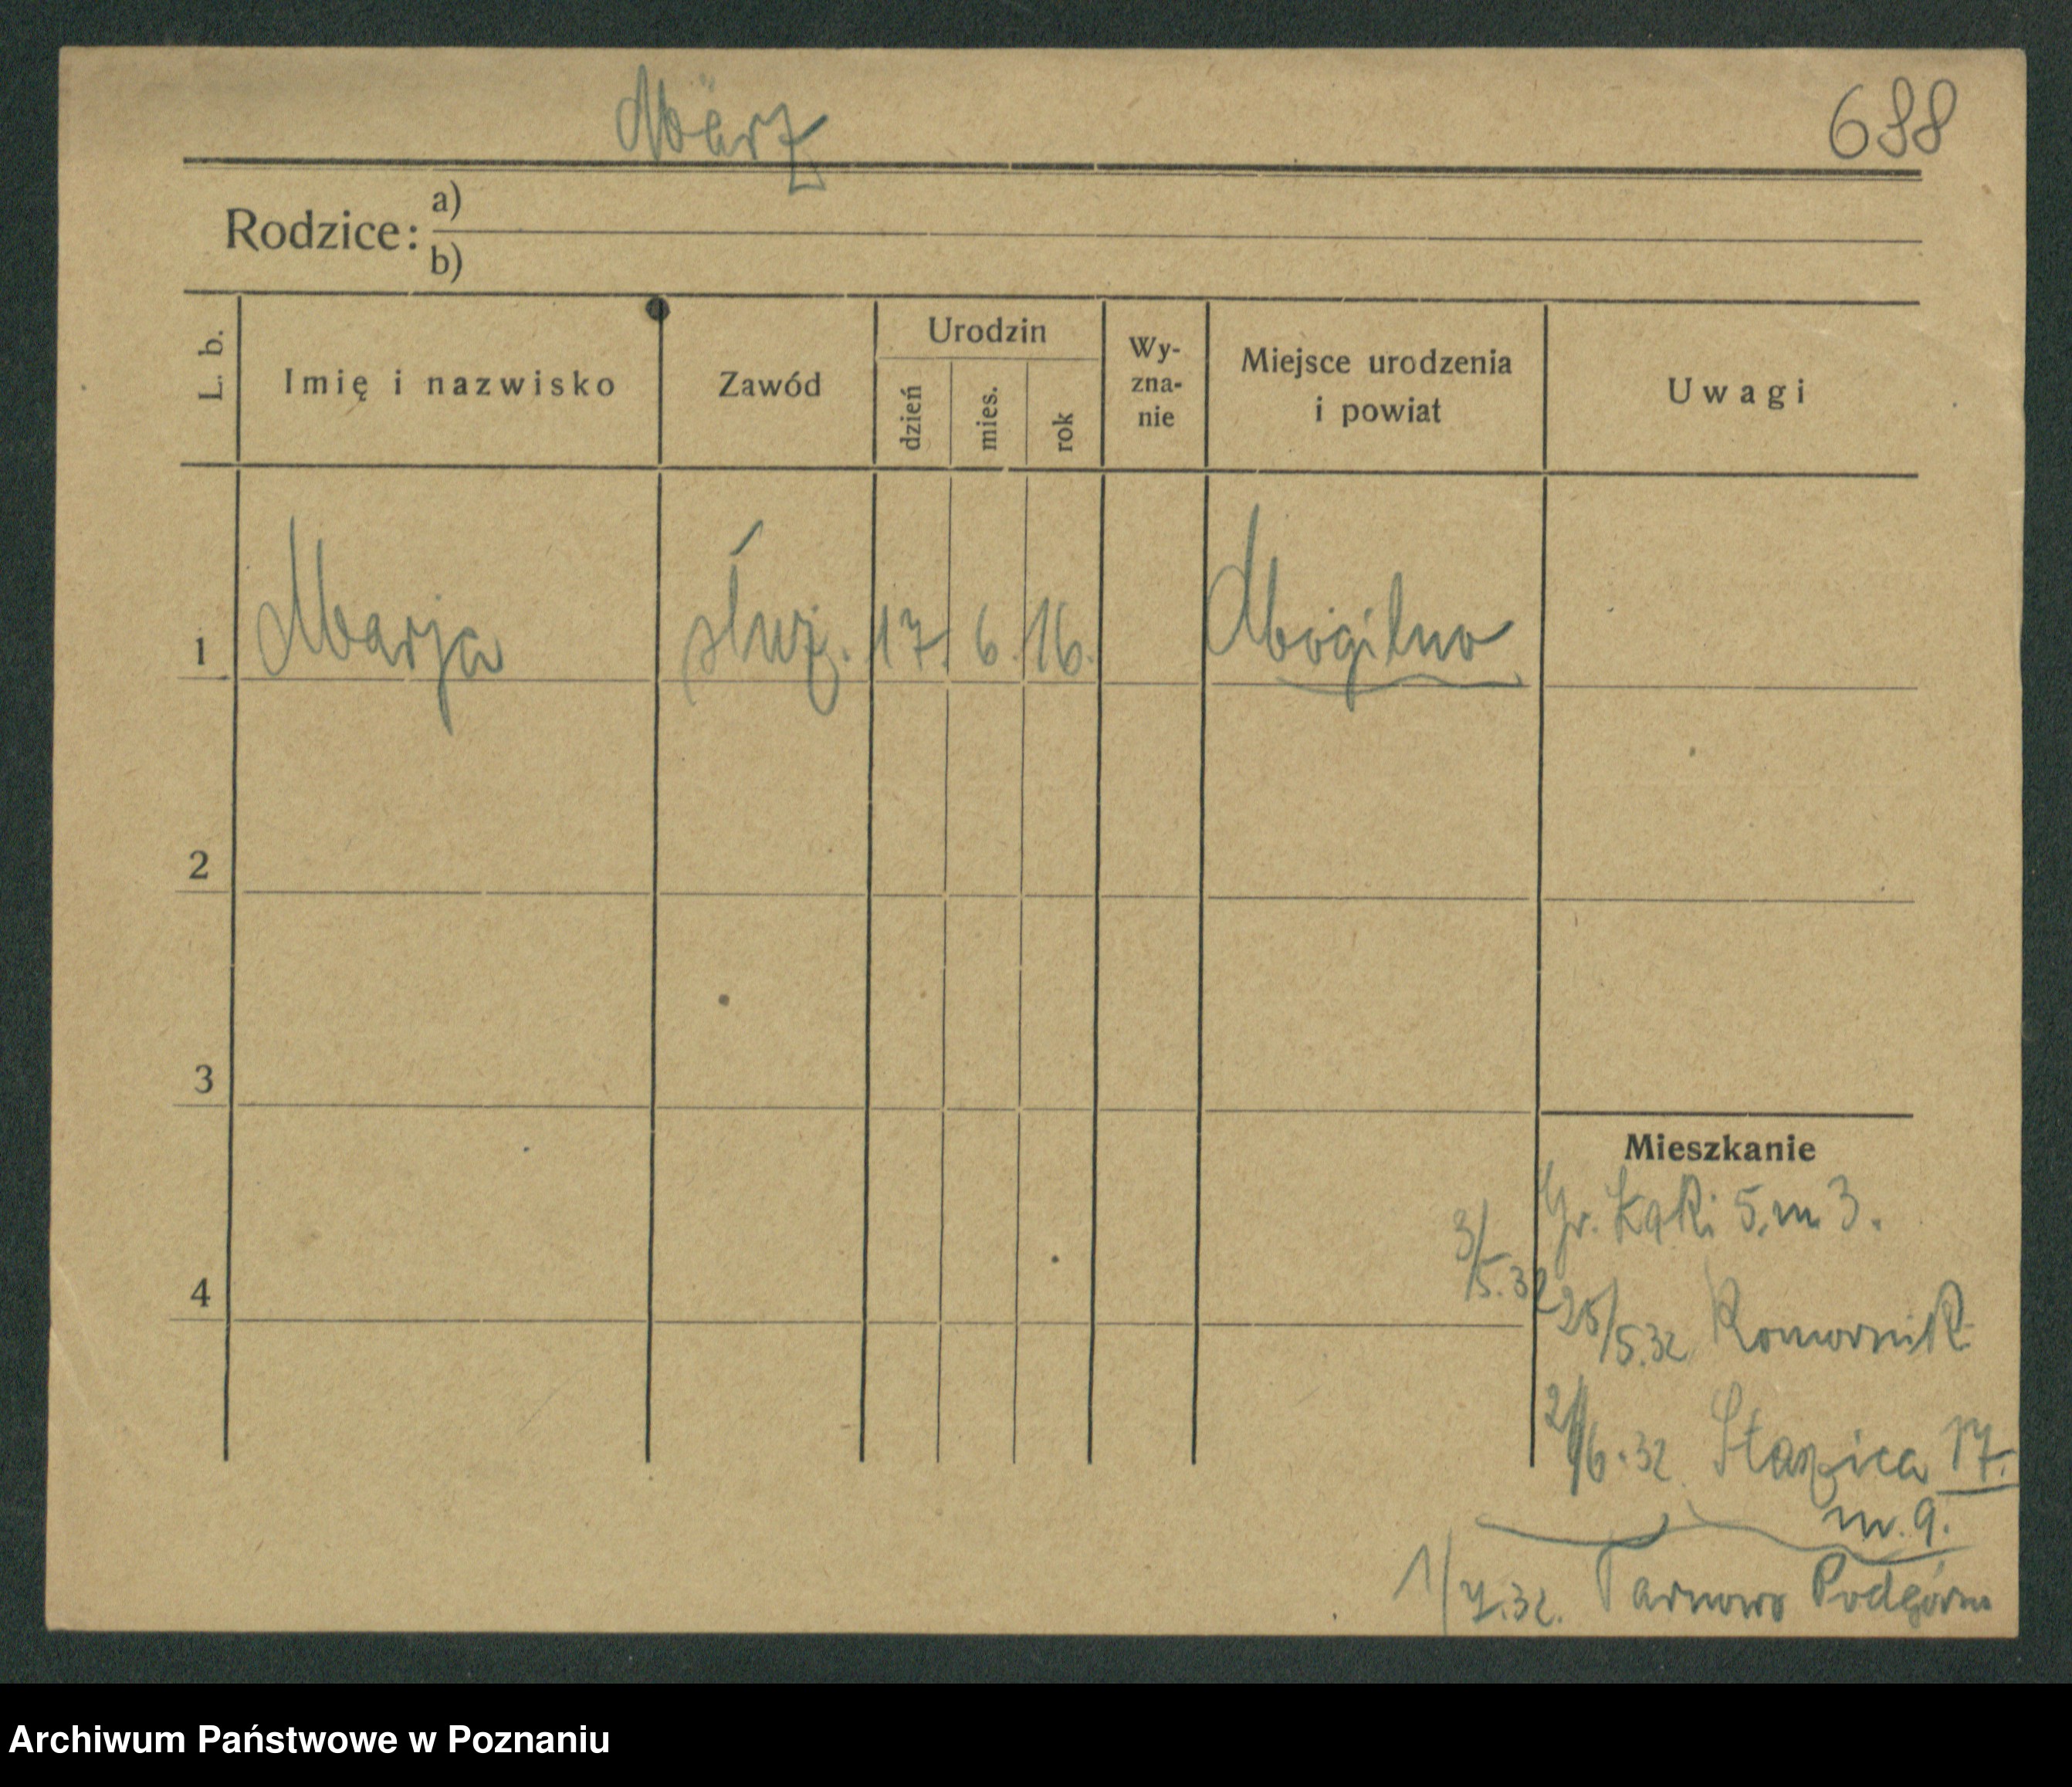 März 688
Rodzice: a)
b)
L. b. Imię i nazwisko Zawód Urodzin dzień mies. rok Wy-zna-nie Miejsce urodzenia i powiat Uwagi
1 Marja służ. 17. 6. 16. Mogilno
2
3
Mieszkanie
3/5.32 Gr. Łąki 5. m 3.
4
25/5.32 Komornik
6.32 Staszica 17.
m. 9.
1/7.32. Tarnowo Podgórne
Archiwum Państwowe w Poznaniu